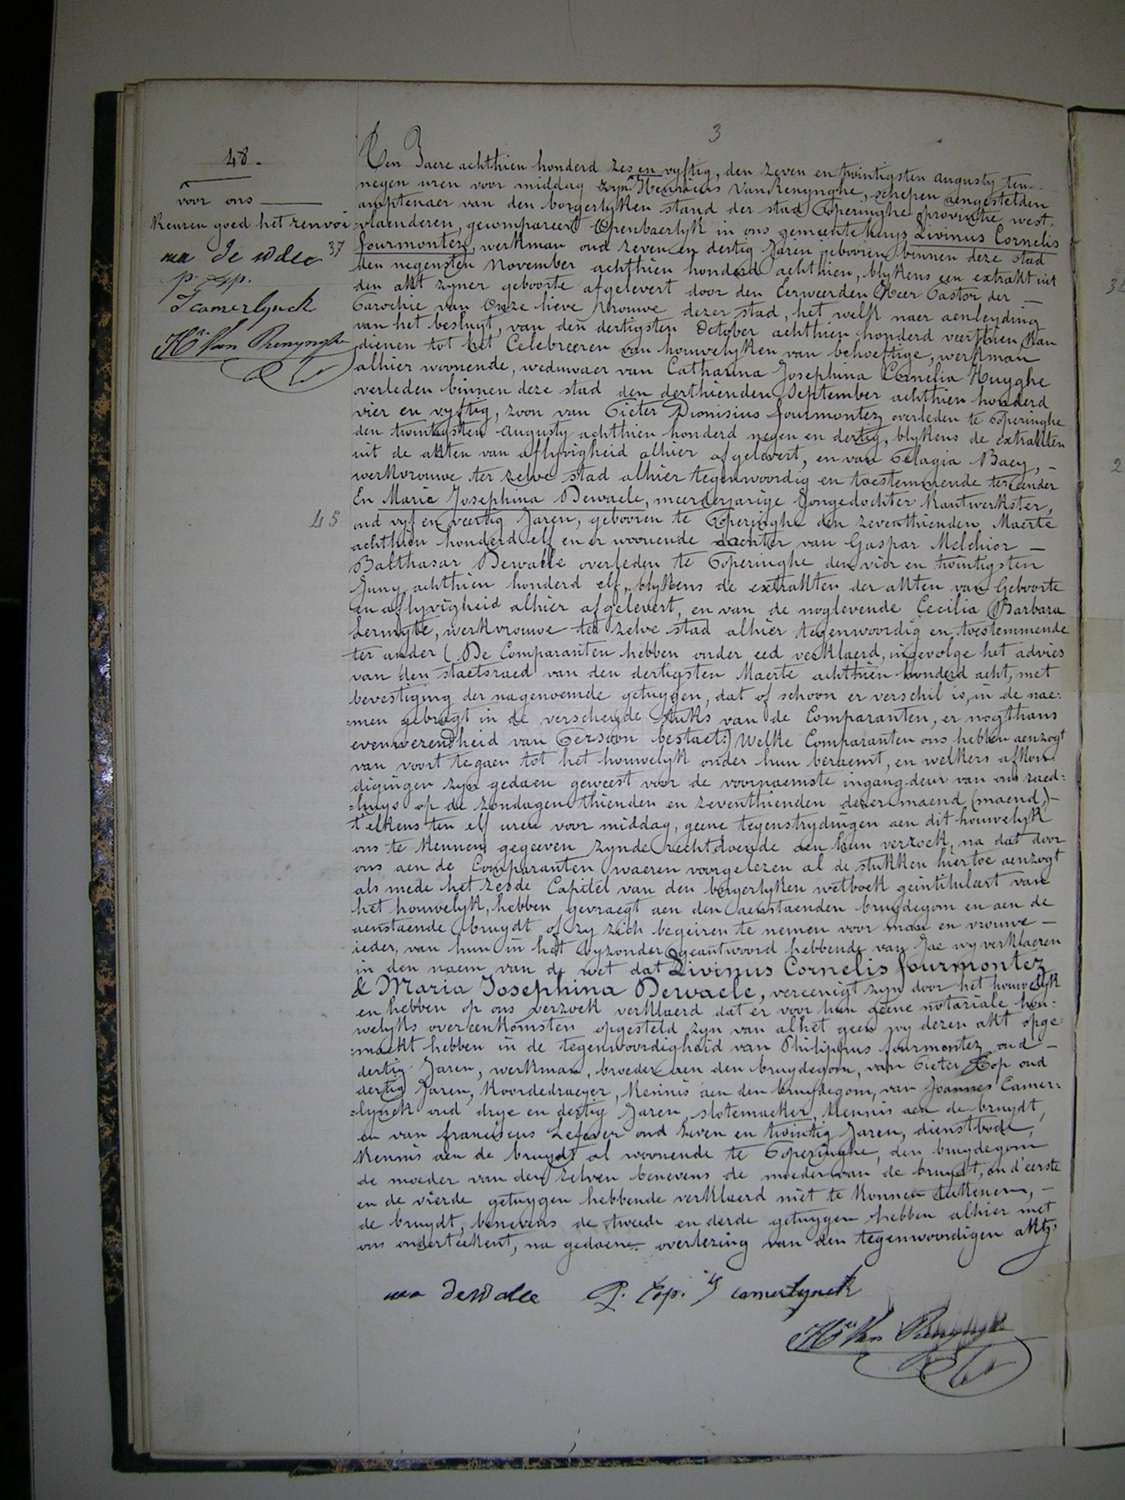 3
48.
voor ons
Keuren goed het renvoi
ma de wdee
p. Cop.
J camerlynck
Hri Van Renynghe
37
45
Den Jaere achthien honderd zes en vyftig, den zeven en twintigsten augusty ten
negen uren voor middag zyn Henricus Van Renynghe, schepen aengestelden
amptenaer van den borgerlyken stand der stad Poperinghe provintie west-
vlaenderen, gecompareert Openbaerlyk in ons gemeentehuys Livinus Cornelis
fourmontez, werkman oud zeven en dertig Jaren geboren binnen deze stad
den negensten November achthien honderd achthien, blykens een extrakt uit
den akt zyner geboorte afgelevert door den Eerweerden Heer Pastor der
Parochie van Onze lieve Vrouwe dezer stad, het welk naer aenleyding
van het besluyt, van den dertigsten October achthien honderd veerthien kan
dienen tot het Celebreeren van houwelyken van behoeftige, werkman
alhier woonende, weduwaer van Catharina Josephina Cornelia Huyghe
overleden binnen deze stad den derthienden September achthien honderd
vier en vyftig, zoon van Pieter Dionisius fourmontez overleden te Poperinghe
den twintigsten Augusty achthien honderd negen en dertig, blykens de extrakten
uit de akten van aflyvigheid alhier afgelevert, en van Pelagia Baey,
werkvrouwe ter zelve stad alhier tegenwoordig en toestemmende ter eender
En Marie Josephina Dewaele, meerderjarige Jongedochter kantwerkster,
oud vyf en veertig Jaren, gebooren te Poperinghe den zeventhienden Maerte
achthien honderd elf en er woonende dochter van Gaspar Melchior
Balthasar Dewaele overleden te Poperinghe den vier en twintigsten
Juny achthien honderd elf, blykens de extrakten der akten van Geboorte
en aflyvigheid alhier afgelevert, en van de noglevende Cecilia Barbara
Lermyte, werkvrouwe ter zelve stad alhier tegenwoordig en toestemmende
ter ander (De Comparanten hebben onder eed verklaerd, ingevolge het advies
van den staetsraed van den dertigsten Maerte achthien honderd acht, met
bevestiging der nagenoemde getuygen, dat of schoon er verschil is, in de nae-
men gebragt in de verscheyde stuks van de Comparanten, er nogthans
evenwezendheid van Persoon bestaet) Welke Comparanten ons hebben aenzogt
van voort te gaen tot het houwelyk onder hun beraemt, en welkers afkon
digingen zyn gedaen geweest voor de voornaemste ingang-deur van ons raed-
huys op de zondagen thienden en zeventhienden dezer maend (maend)
t'elkens ten elf uren voor middag, geene tegenstrydingen aen dit houwelyk
ons te kennen gegeeven zynde rechtdoende aen hun verzoek, na dat door
ons aen de Comparanten waeren voorgelezen al de stukken hiertoe aenzogt
als mede het zesde Capitel van den borgerlyken wetboek geintituleert van
het houwelyk, hebben gevraegt aen den aenstaenden bruydegom en aen de
aenstaende bruydt of zy zich begeiren te nemen voor man en vrouwe
ieder van hun in het byzonder geantwoord hebbende van Jae wy verklaeren
in den naem van de wet dat Livinus Cornelis fourmontez
& Maria Josephina Dewaele, vereenigt zyn door het houwelyk
en hebben op ons verzoek verklaerd dat er voor hun geene notariale hou-
welyks overeenkomsten opgesteld zyn van al het geen wy dezen akt opge-
maekt hebben in de tegenwoordigheid van Philippus fourmontez oud
dertig Jaren, werkman, broeder aen den bruydegom, van Pieter Cop oud
dertig Jaren, Koordedraeyer, kennis aen den bruydegom, van Joannes Camer-
lynck oud drye en dertig Jaren, slotemaeker, kennis aen de bruydt,
en van franciscus Lefever oud zeven en twintig Jaren, dienstbode,
kennis aen de bruydt al woonende te Poperinghe, den bruydegom
de moeder van den zelven benevens de moeder van de bruydt, en d'eerste
en de vierde getuygen hebbende verklaerd niet te konnen teekenen,
de bruydt, benevens de tweede en derde getuygen hebben alhier met
ons onderteekent, na gedaene overlezing van den tegenwoordigen akt.
ma dewdee P. Cop. J camerlynck
Hri Van Renynghe